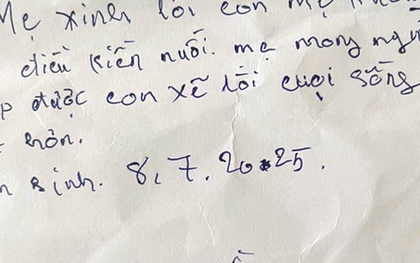 Mẹ xinh lỗi con mẹ
điều kiễn nuôi. mẹ mong
được con xẽ lội cuọi sống
hơn.
sinh. 8, 7. 20.25.